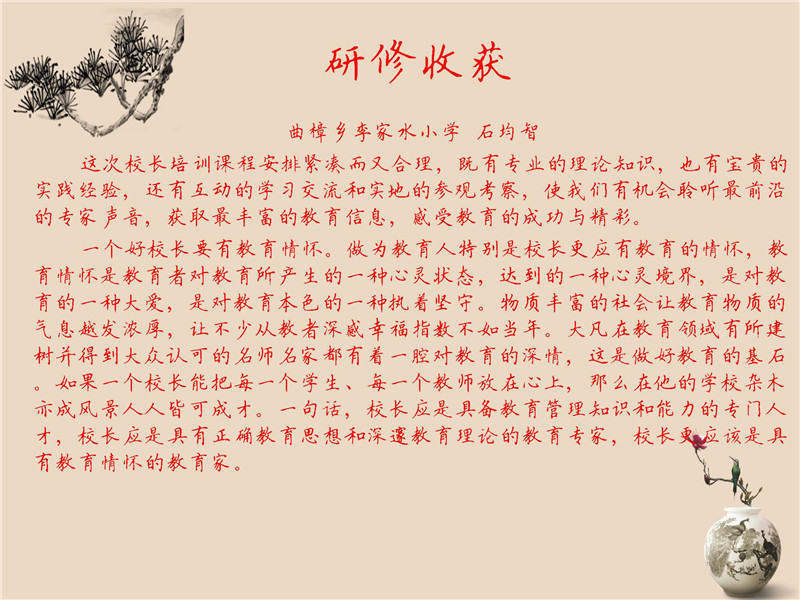 研修收获
曲樟乡李家水小学 石均智
这次校长培训课程安排紧凑而又合理，既有专业的理论知识，也有宝贵的
实践经验，还有互动的学习交流和实地的参观考察，使我们有机会聆听最前沿
的专家声音，获取最丰富的教育信息，感受教育的成功与精彩。
一个好校长要有教育情怀。做为教育人特别是校长更应有教育的情怀，教
育情怀是教育者对教育所产生的一种心灵状态，达到的一种心灵境界，是对教
育的一种大爱，是对教育本色的一种执着坚守。物质丰富的社会让教育物质的
气息越发浓厚，让不少从教者深感幸福指数不如当年。大凡在教育领域有所建
树并得到大众认可的名师名家都有着一腔对教育的深情，这是做好教育的基石
。如果一个校长能把每一个学生、每一个教师放在心上，那么在他的学校杂木
亦成风景人人皆可成才。一句话，校长应是具备教育管理知识和能力的专门人
才，校长应是具有正确教育思想和深邃教育理论的教育专家，校长更应该是具
有教育情怀的教育家。